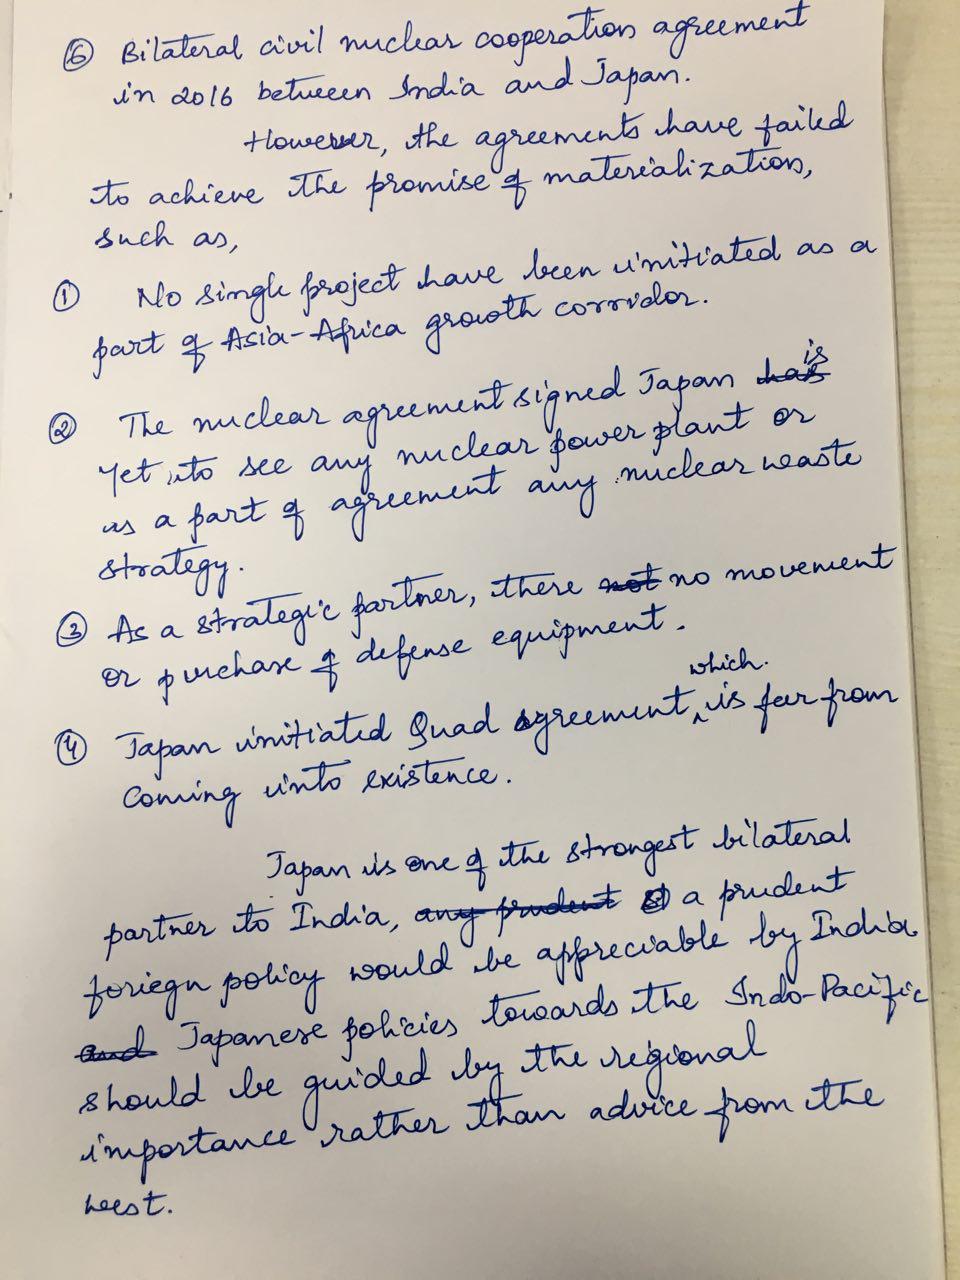 ⑥ Bilateral civil nuclear cooperation agreement
in 2016 between India and Japan.
However, the agreements have failed
to achieve the promise of materialization,
such as,
① No single project have been initiated as a
part of Asia-Africa growth corridor.
② The nuclear agreement signed Japan is
yet to see any nuclear power plant or
as a part of agreement any nuclear waste
strategy.
③ As a strategic partner, there no movement
or purchase of defense equipment.
④ Japan initiated Quad agreement, which is far from
coming into existence.
Japan is one of the strongest bilateral
partner to India, a prudent
foriegn policy would be appreciable by India
Japanese policies towards the Indo-Pacific
should be guided by the regional
importance rather than advice from the
west.